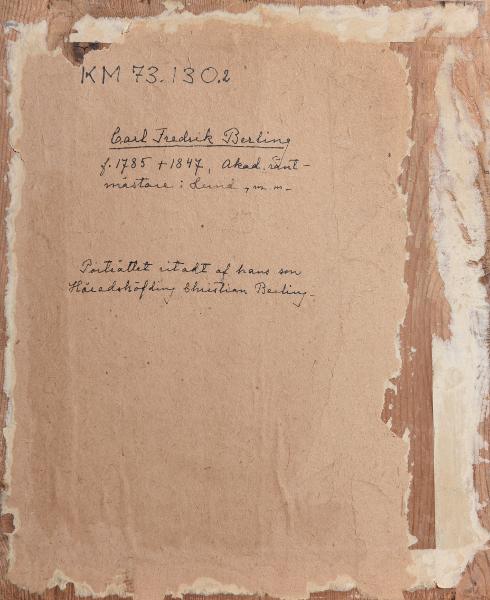 KM 73.130.2
Carl Fredrik Berling
f. 1785 + 1847, Akad. ränt-
mästare i Lund, m. m.
Porträttet ritadt af hans son
Häradshöfding Christian Berling.